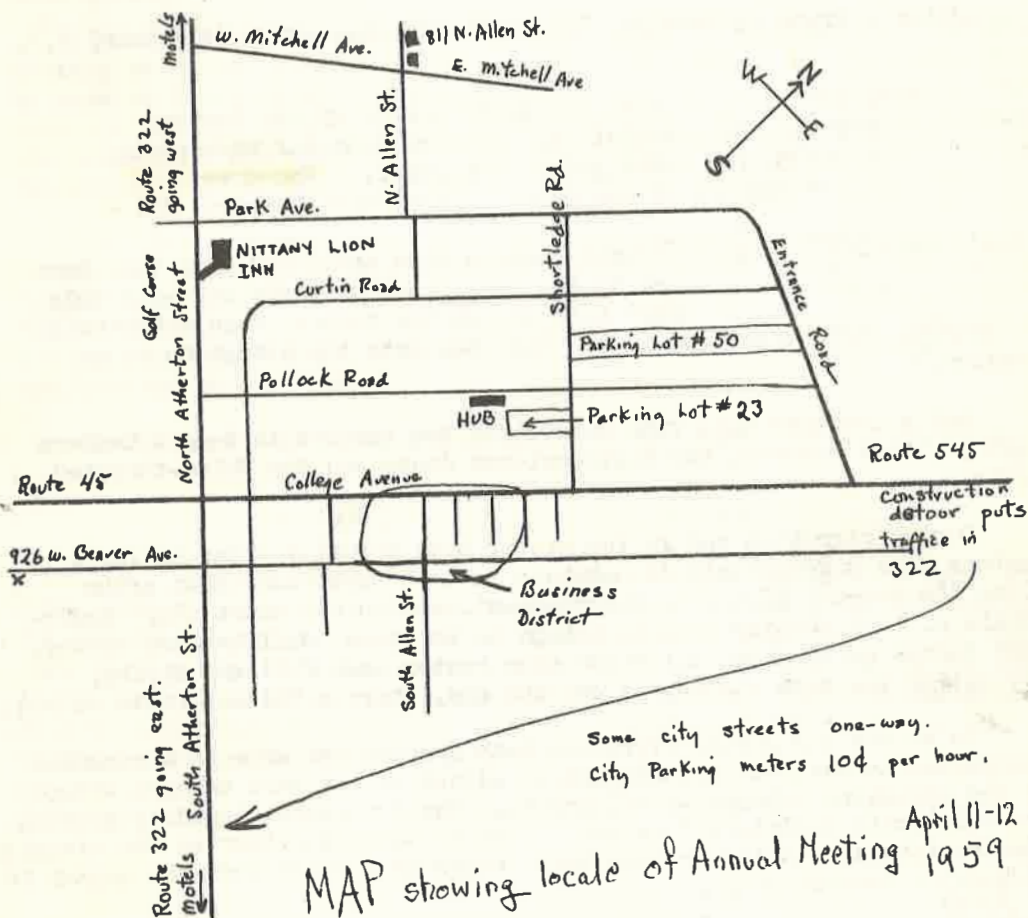 motels
W. Mitchell Ave.
811 N. Allen St.
E. Mitchell Ave
N. Allen St.
W
N
E
S
Route 322
going west
Park Ave.
Shortledge Rd.
NITTANY LION
INN
Golf Corse
North Atherton Street
Curtin Road
Entrance
Road
Parking Lot # 50
Pollock Road
HUB
Parking Lot # 23
Route 45
College Avenue
Route 545
Construction
detour puts
traffic in
322
926 W. Beaver Ave.
x
Business
District
South Allen St.
South Atherton St.
Route 322 going east
motels
Some city streets one-way.
City Parking meters 10¢ per hour.
MAP showing locale of Annual Meeting April 11-12
1959